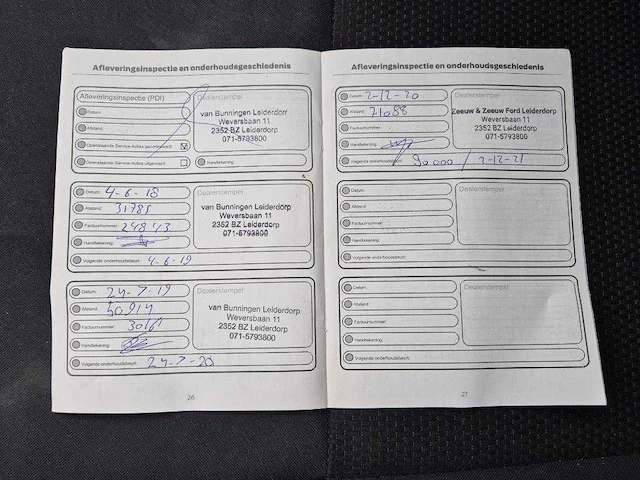 Afleveringsinspectie en onderhoudsgeschiedenis
Afleveringsinspectie (PDI)
Datum:
Afstand:
Openstaande Service-Acties gecontroleerd
Openstaande Service-Acties uitgevoerd
Dealerstempel
van Bunningen Leiderdorp
Weversbaan 11
2352 BZ Leiderdorp
071-5793800
Handtekening:
Datum: 4-6-18
Afstand: 31785
Factuurnummer: 24843
Handtekening:
Volgende onderhoudsbeurt: 4-6-19
Dealerstempel
van Bunningen Leiderdorp
Weversbaan 11
2352 BZ Leiderdorp
071-5793800
Datum: 24-7-19
Afstand: 50914
Factuurnummer:
Handtekening:
Volgende onderhoudsbeurt: 24-7-20
Dealerstempel
van Bunningen Leiderdorp
Weversbaan 11
2352 BZ Leiderdorp
071-5793800
26
Afleveringsinspectie en onderhoudsgeschiedenis
Datum: 2-12-20
Afstand: 71088
Factuurnummer:
Handtekening:
Volgende onderhoudsbeurt: 90.000 / 2-12-21
Dealerstempel
Zeeuw & Zeeuw Ford Leiderdorp
Weversbaan 11
2352 BZ Leiderdorp
071-5793800
Datum:
Afstand:
Factuurnummer:
Handtekening:
Volgende onderhoudsbeurt:
Dealerstempel
Datum:
Afstand:
Factuurnummer:
Handtekening:
Volgende onderhoudsbeurt:
Dealerstempel
27